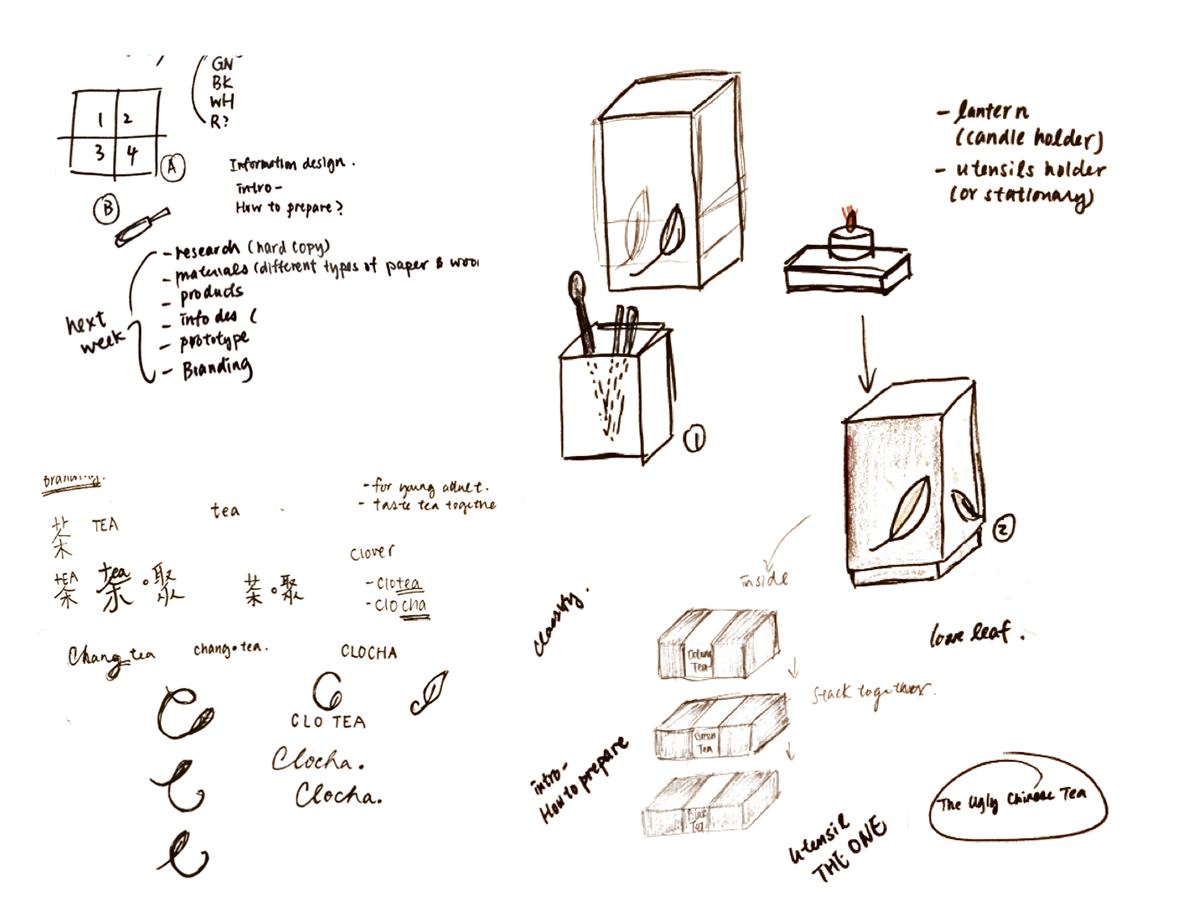 GN
BK
WH
R?
1 2
3 4
A
Information design.
intro-
How to prepare?
B
- research (hard copy)
- materials (different types of paper & wood
- products
- info des (
- prototype
- Branding
next
week
- lantern
(candle holder)
- utensils holder
(or stationary)
1
2
Branding.
- for young adult.
- taste tea togethe
茶 TEA
tea
clover
TEA
茶
tea
茶。聚
茶。聚
- clotea
- clocha
Chang tea
chang•tea.
CLOCHA
CLO TEA
Clocha.
Clocha.
inside
classify.
Oolong
Tea
Green
Tea
stack together.
love leaf.
intro-
How to prepare
utensil
THE ONE
The Ugly Chinese Tea